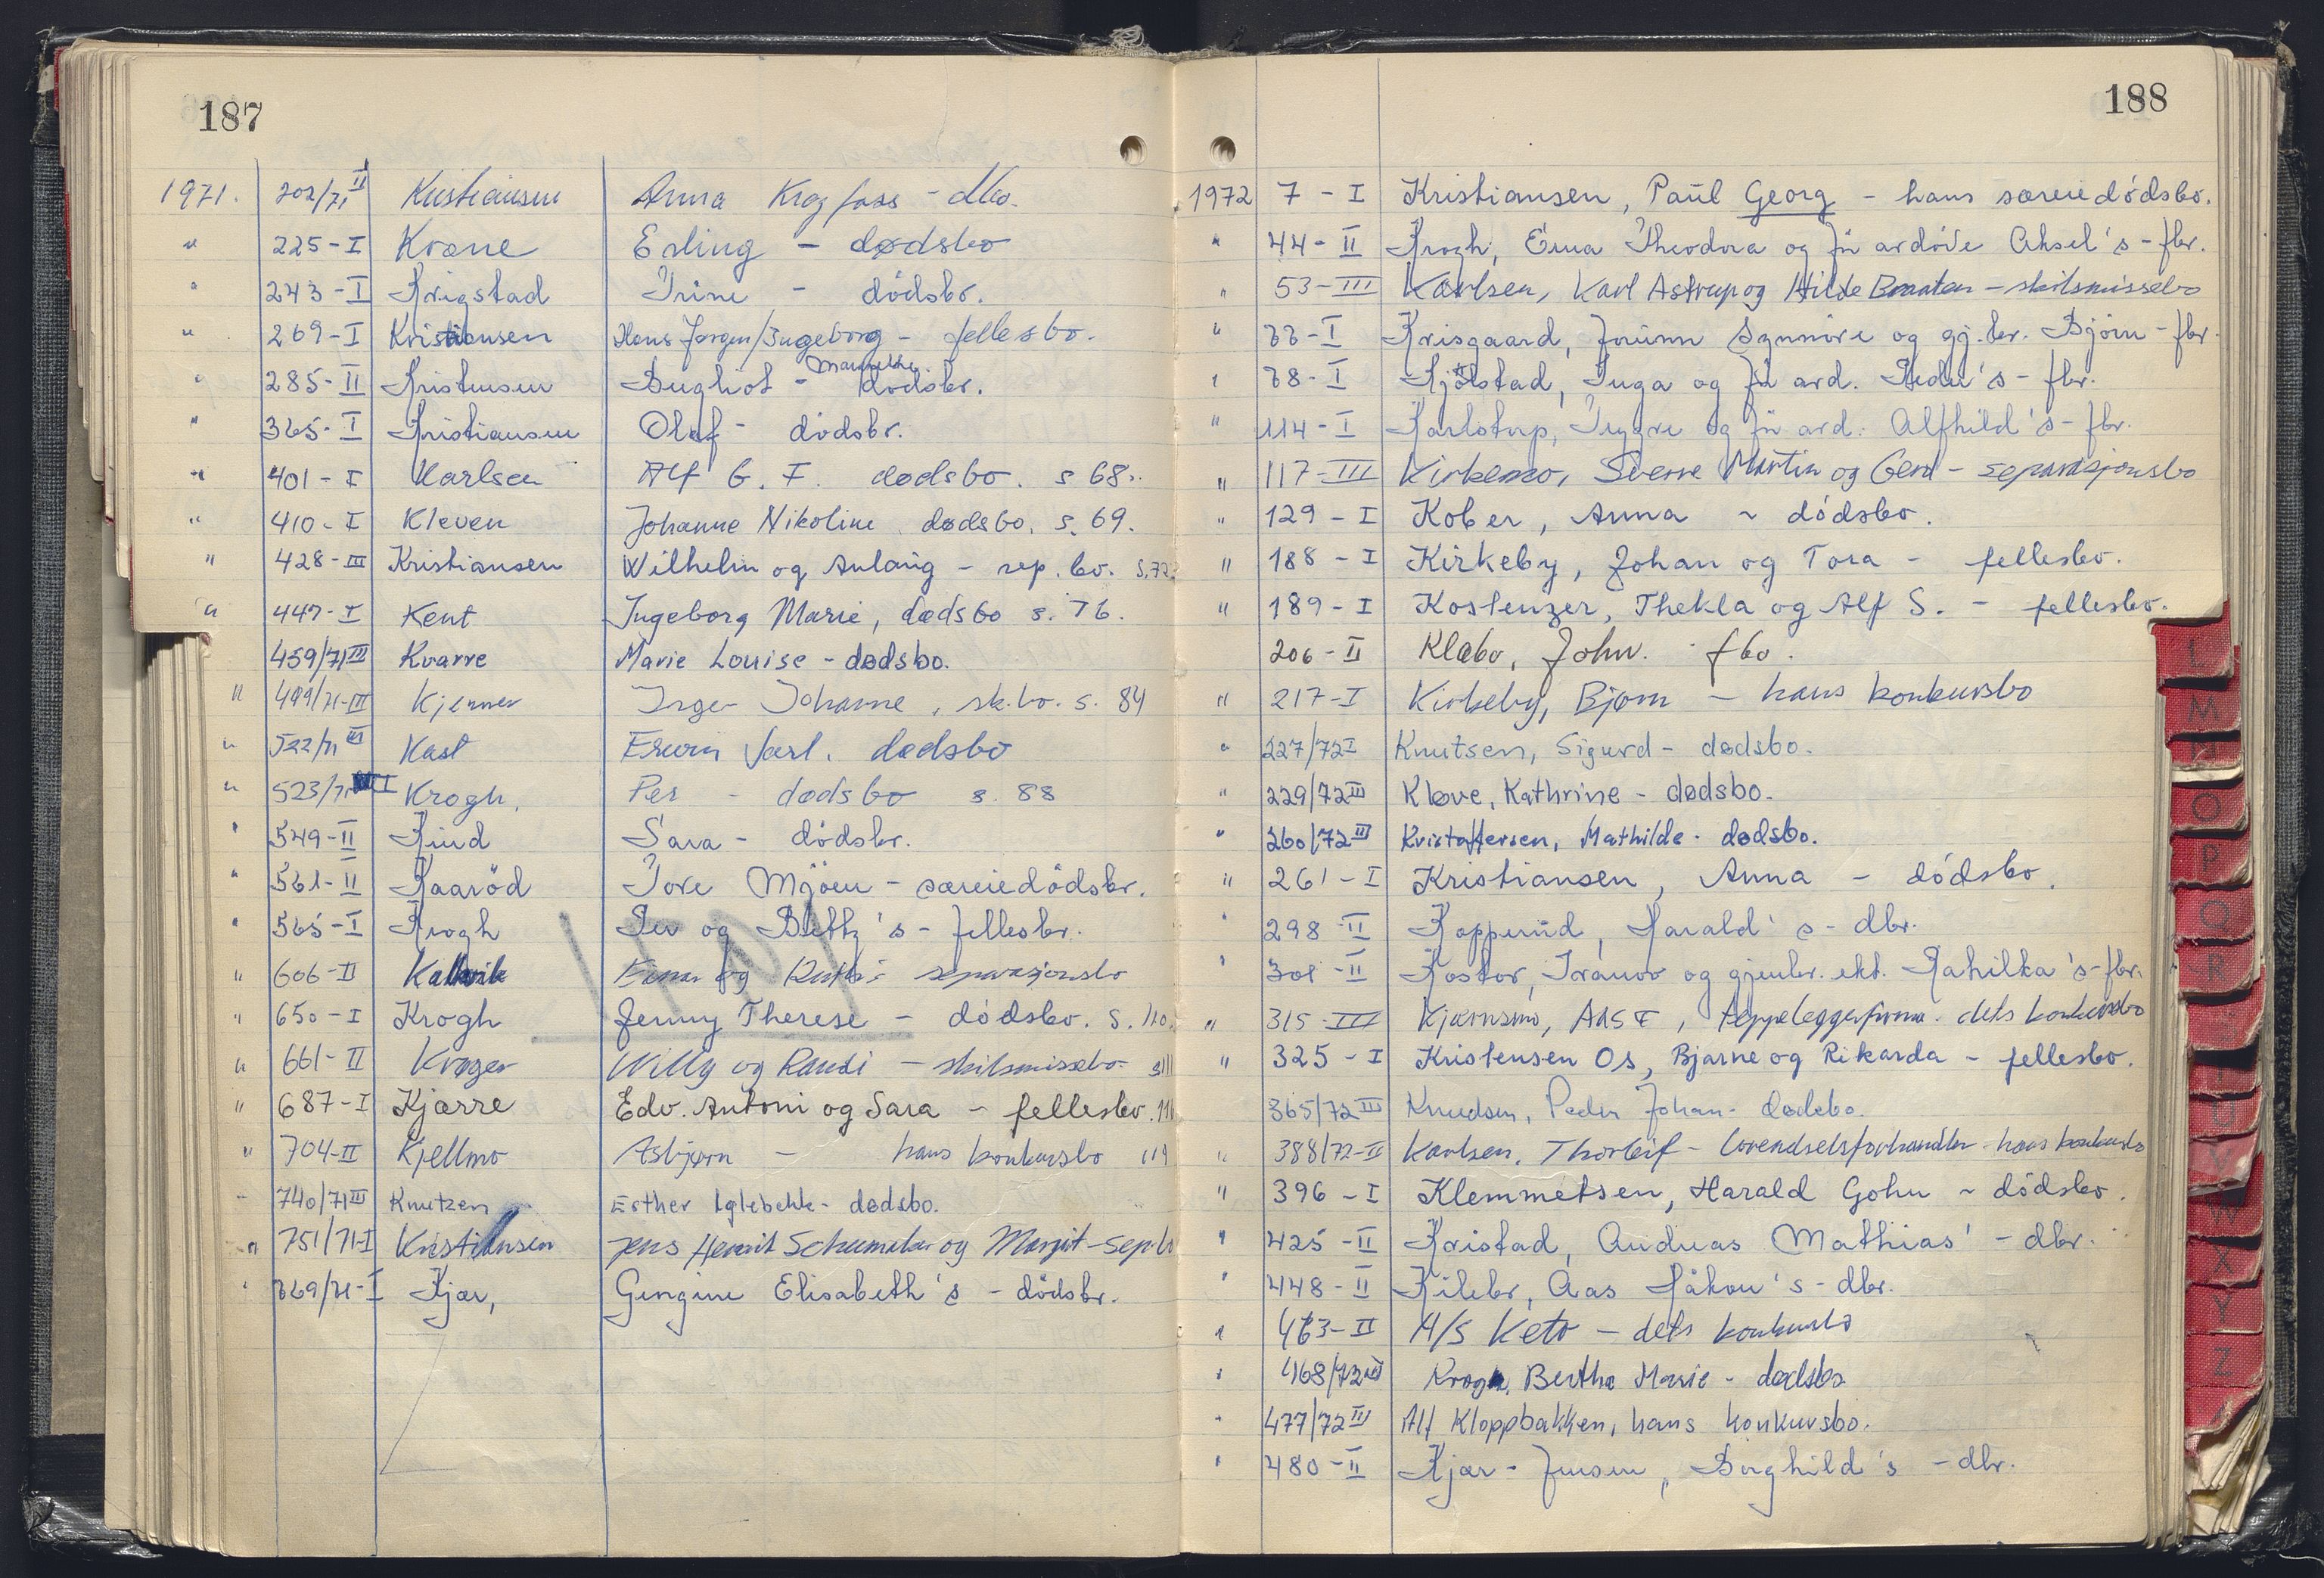 187
1971. 202/71 II Kristiansen Anna Kragfoss - dbo.
" 225-I Kværne Erling - dødsbo
" 243-I Krigstad Trine - dödsbo.
" 269-I Kristiansen Hans Jørgen/Ingeborg - fellesbo.
" 285-II Kristensen - Mannethe dödsbo.
" 365-I Kristiansen Olaf - dödsbo.
" 401-I Karlsen Alf G. F. dødsbo. s 68.
" 410-I Kleven Johanne Nikoline dødsbo. s. 69.
" 428-III Kristiansen Wilhelm og Anlaug - sep. bo. s. 72
" 447-I Kent Ingeborg Marie, dødsbo s. 76.
459/71 III Kvarre Marie Louise - dødsbo.
" 499/71-III Kjerner Inger Johanne, sk.bo. s. 84
" 522/71 III Kast Erwin Karl. dødsbo
" 523/71 I Krogh, Per - dødsbo s. 88
" 549-II Rud Sara - dödsbo.
" 561-II Kaaröd Tove Mjöen - særeiedödsbo.
" 565-I Krogh Per og Betty's - fellesbo.
" 606-II Kallevik Einar og Ruth's separasjonsbo
" 650-I Krogh Jenny Therese - dödsbo. s. 110.
" 661-II Krøger Willy og Randi - skilsmissebo. s 111
" 687-I Kjærre Edv. Antoni og Sara - fellesbo. 116
" 704-II Kjellmo Asbjørn - hans konkursbo 119
" 740/71 III Knutzen Esther Iglebekk - dødsbo.
" 751/71-I Kristiansen Jens Henrik Schumaker og Margit - sep.bo
" 769/71-I Kjær, Gurgine Elisabeth's - dödsbo.
188
1972 7-I Kristiansen, Paul Georg - hans særeiedödsbo.
" 44-II Krogh, Erna Theodora og für avdöde Aksel's - fbo.
" 53-III Karlsen, Karl Astrup og Hilde Braaten - skilsmissebo
" 77-I Krisgaard, Jorunn Synnöve og gj.lev. Björn - fbo.
" 78-I Kjölstad, Inga og für avd. Peder's - fbo.
" 114-I Karlstorp, Trygve og für avd. Alfhild's - fbo.
" 117-III Kirkemo, Sverre Martin og Gerd - separasjonsbo
" 129-I Kober, Anna - dödsbo.
" 188-I Kirkeby, Johan og Tora - fellesbo.
" 189-I Kostenzer, Thekla og Alf S. - fellesbo.
206-II Klæbo, John. fbo.
" 217-I Kirkeby, Bjørn - hans konkursbo
" 227/72 I Knutsen, Sigurd - dødsbo.
" 229/72 III Kløve, Kathrine - dødsbo.
" 260/72 III Kristoffersen, Mathilde - dødsbo.
" 261-I Kristiansen, Anna - dödsbo.
" 298-II Kopperud, Harald's - dbo.
" 301-II Kostov, Ivanov og gjenlev. ekt. Rahilka's - fbo.
" 315-III Kjærnsmo, Aase, teppeleggerfirma - dets konkursbo
" 325-I Kristensen Os, Bjarne og Rikarda - fellesbo.
365/72 III Knudsen, Peder Johan - dødsbo.
" 388/72-II Karlsen, Thorleif - hans konkursbo
" 396-I Klemmetsen, Harald John - dödsbo.
" 425-II Kristad, Andreas Mathias' - dbo.
" 448-II Kilebo, Aas Håkon's - dbo.
" 463-II A/S Keto - dets konkursbo
" 468/72 III Krogh, Berthe Marie - dødsbo
" 477/72 III Alf Kloppbakken, hans konkursbo.
" 480-II Kjær-Jensen, Borghild's - dbo.
L
M
N
O
P
Q
R
T
U
V
W
X
Y
Z